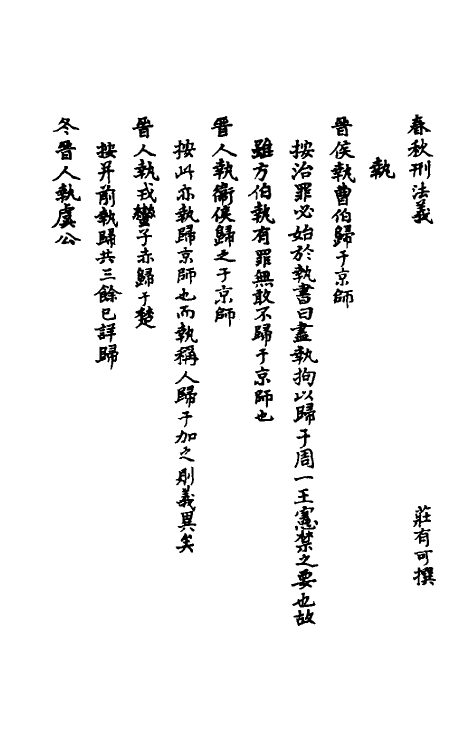 春秋刑法義
莊有可撰
執
晉侯執曹伯歸于京師
按治罪必始於執書曰盡執拘以歸于周一王憲禁之要也故
雖方伯執有罪無敢不歸于京師也
晉人執衞侯歸之于京師
按此亦執歸京師也而執稱人歸于加之則義異矣
晉人執戎蠻子赤歸于楚
按并前執歸共三餘已詳歸
冬晉人執虞公